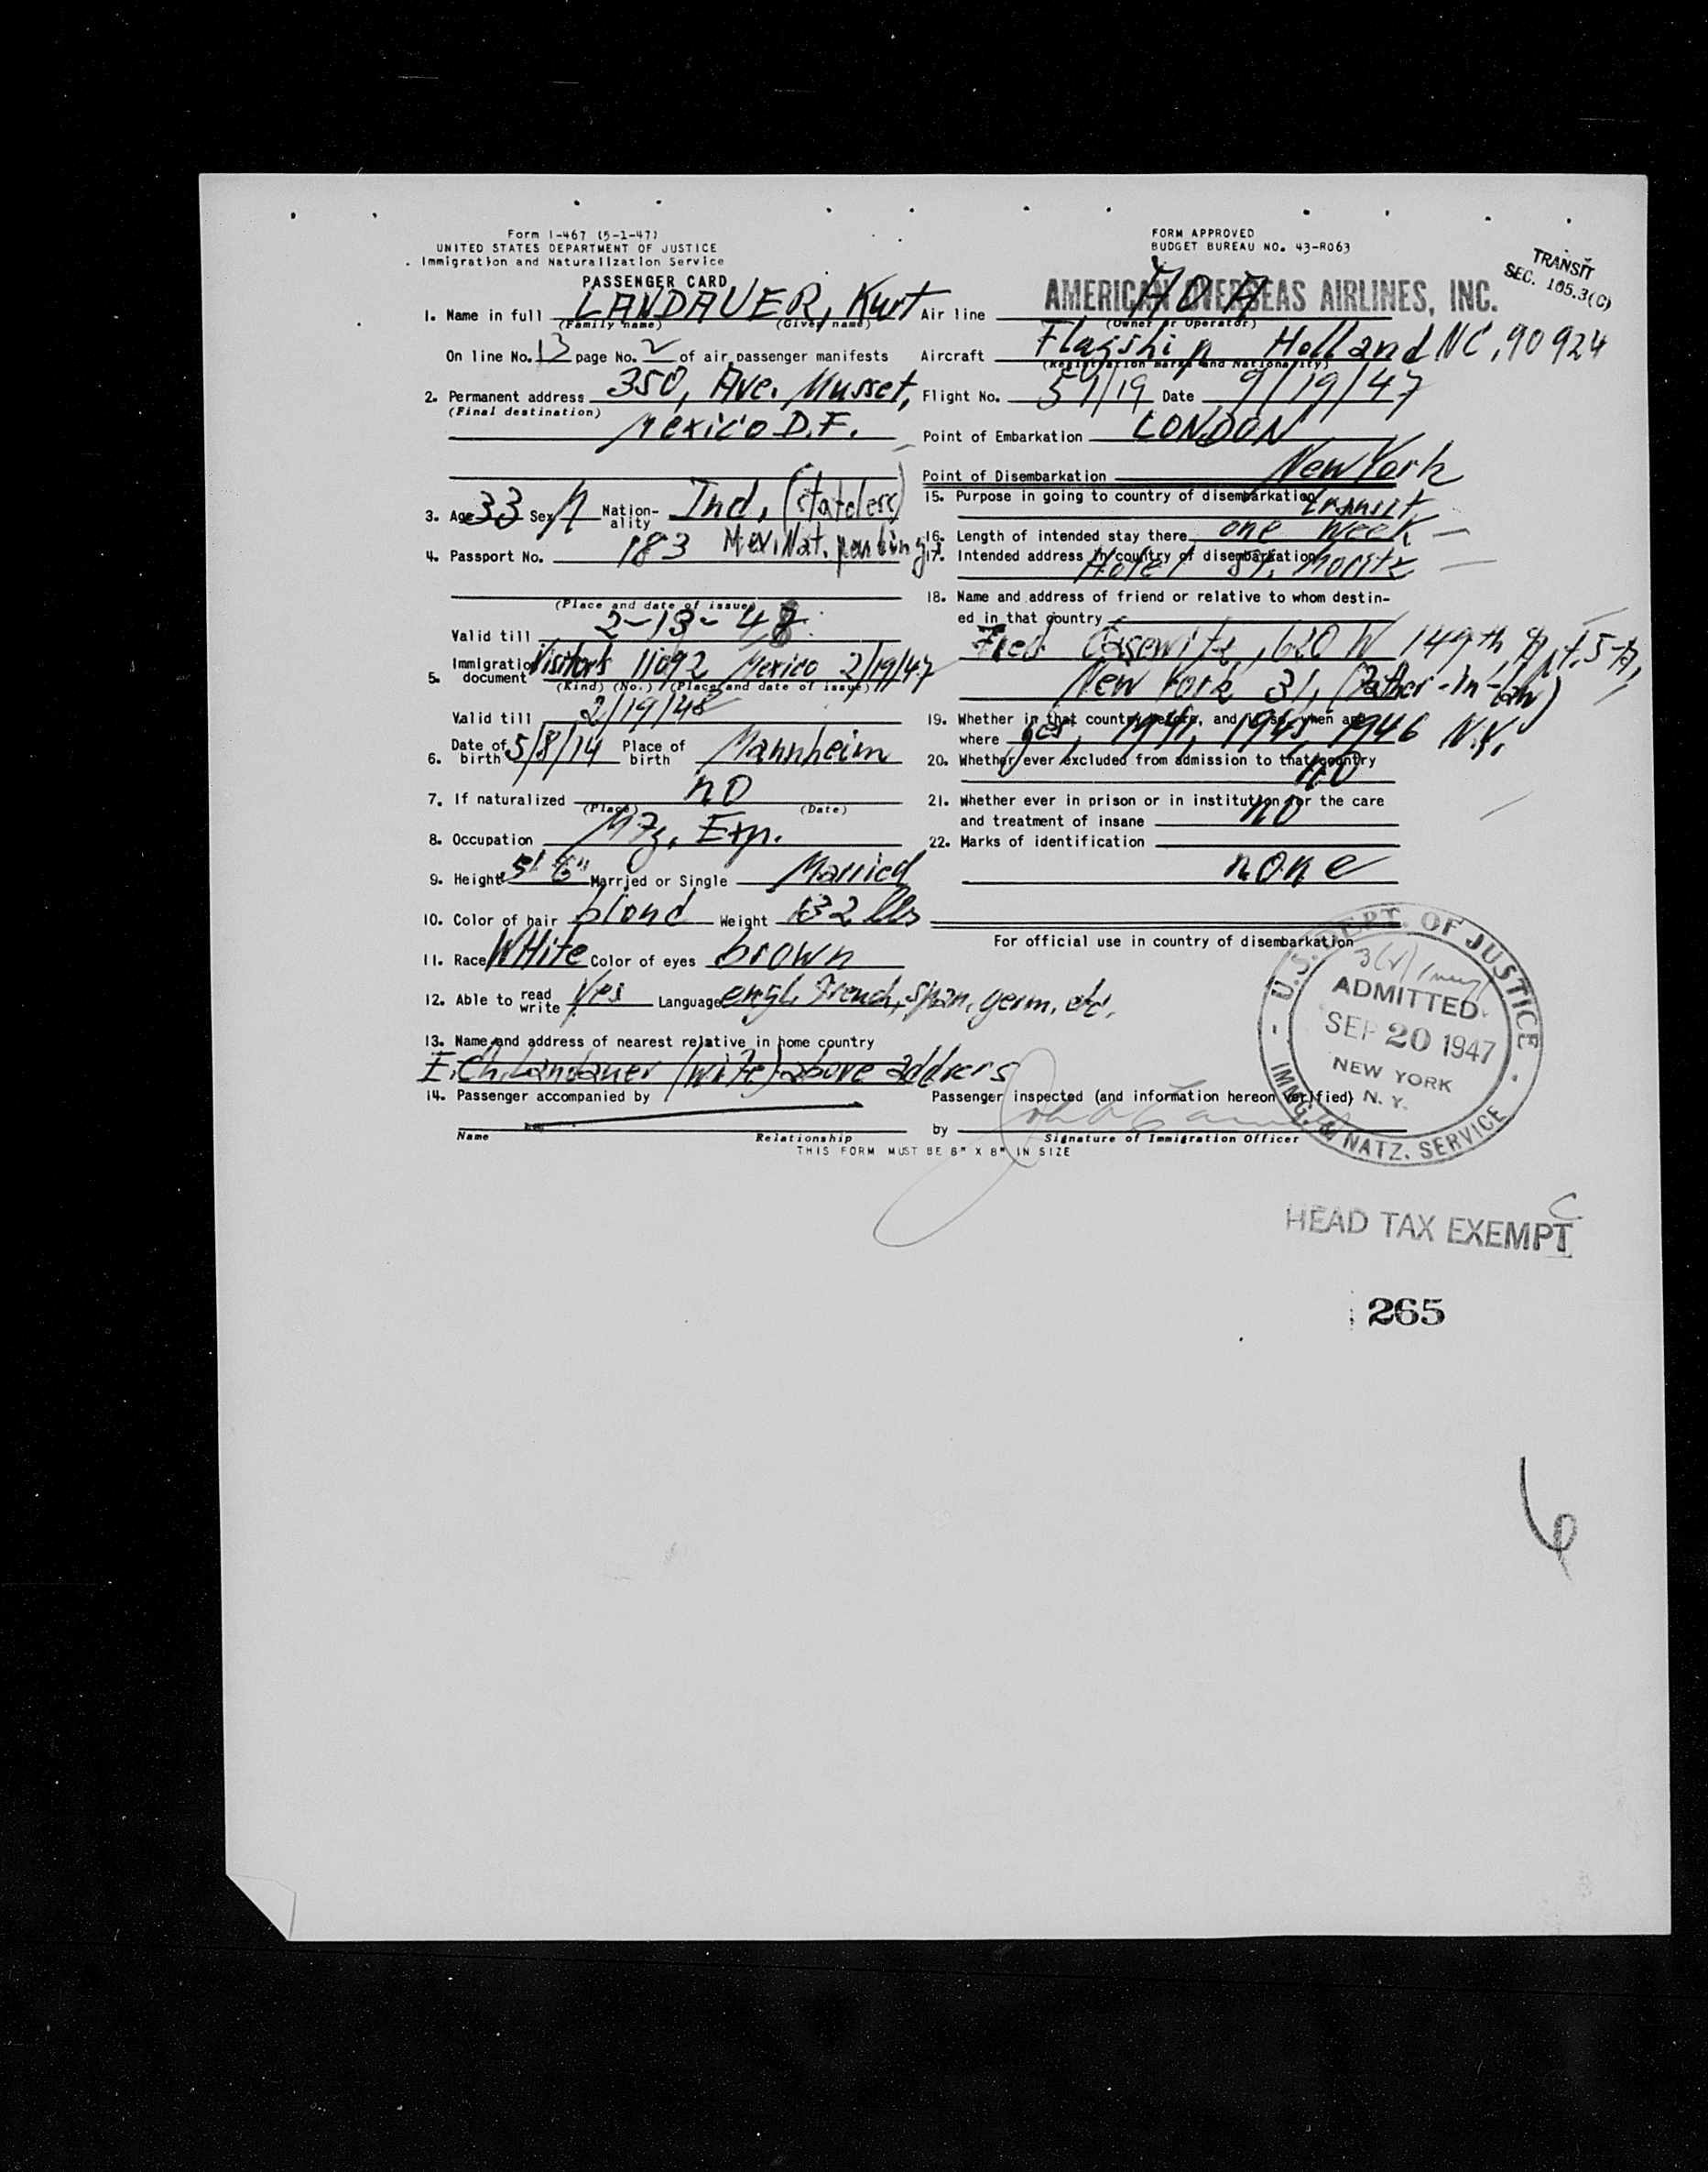 Form I-467 (5-1-47)
UNITED STATES DEPARTMENT OF JUSTICE
Immigration and Naturalization Service
PASSENGER CARD
FORM APPROVED
BUDGET BUREAU NO. 43-R063
TRANSIT
SEC. 105.3(C)
1. Name in full LANDAUER, Kurt
(Family name) (Given name)
On line No. 13 page No. 2 of air passenger manifests
2. Permanent address 350, Ave. Musset,
(Final destination)
Mexico D.F.
3. Age 33 Sex M Nation-ality Ind. (stateless)
4. Passport No. 183 Mex. Nat. pending
(Place and date of issue)
Valid till 2-13-48
5. Immigration document Visitors 11092 Mexico 2/19/47
(Kind) (No.) (Place and date of issue)
Valid till 2/19/48
6. Date of birth 5/8/14 Place of birth Mannheim
7. If naturalized no
(Place) (Date)
8. Occupation Mfg. Exp.
9. Height 5' 6" Married or Single Married
10. Color of hair blond Weight 132 lbs
11. Race WHite Color of eyes brown
12. Able to read write Yes Language engl. French, span, germ, etc.
13. Name and address of nearest relative in home country
E. Ch. Landauer (wife) above address
14. Passenger accompanied by
Name Relationship
THIS FORM MUST BE 8" X 8" IN SIZE
AMERICAN OVERSEAS AIRLINES, INC.
Air line AOA
(Owner or Operator)
Aircraft Flagship Holland NC, 90924
(Registration marks and Nationality)
Flight No. 57/19 Date 9/19/47
Point of Embarkation LONDON
Point of Disembarkation New York
15. Purpose in going to country of disembarkation transit
16. Length of intended stay there one week
17. Intended address in country of disembarkation
Hotel St. Moritz
18. Name and address of friend or relative to whom destin-
ed in that country
Fred 620 W 149th Apt. 5-A,
New York 31, (Father-In-Law)
19. Whether in that country before, and if so, when and
where yes, 1941, 1945 1946 N.Y.
20. Whether ever excluded from admission to that country
no
21. Whether ever in prison or in institution for the care
and treatment of insane no
22. Marks of identification
none
For official use in country of disembarkation
U.S. DEPT. OF JUSTICE
ADMITTED
SEP 20 1947
NEW YORK
N. Y.
IMMIG. & NATZ. SERVICE
Passenger inspected (and information hereon verified)
by
Signature of Immigration Officer
HEAD TAX EXEMPT
C
265
6